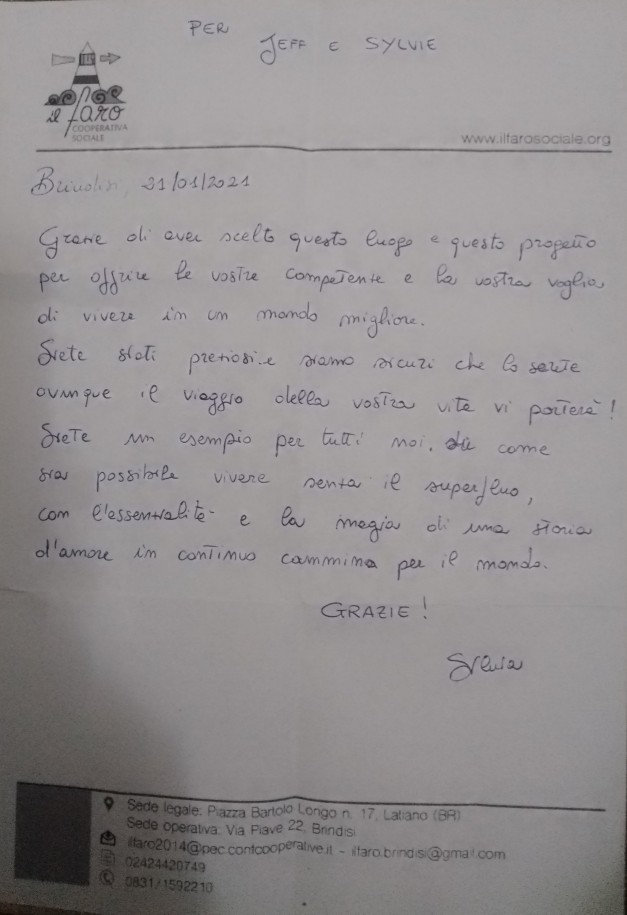 PER
JEFF E SYLVIE
il faro
COOPERATIVA
SOCIALE
www.ilfarosociale.org
Brindisi, 21/01/2021
Grazie di aver scelto questo luogo e questo progetto
per offrire le vostre competenze e la vostra voglia
di vivere in un mondo migliore.
Siete stati preziosi e siamo sicuri che lo sarete
ovunque il viaggio della vostra vita vi porterà!
Siete un esempio per tutti noi, di come
sia possibile vivere senza il superfluo,
con l'essenzialità e la magia di una storia
d'amore in continuo cammino per il mondo.
GRAZIE!
Silvia
Sede legale: Piazza Bartolo Longo n. 17, Latiano (BR)
Sede operativa: Via Piave 22, Brindisi
ilfaro2014@pec.confcooperative.it - ilfaro.brindisi@gmail.com
02424420749
0831/1592210